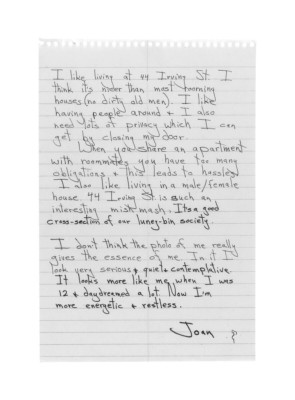 I like living at 44 Irving St. I
think it's nicer than most rooming
houses (no dirty old men). I like
having people around & I also
need lots of privacy which I can
get by closing my door.
When you share an apartment
with roommates you have too many
obligations & this leads to hassles
I also like living in a male/female
house. 44 Irving St. is such an
interesting mish mash. Its a good
cross-section of our luney-bin society.
I don't think the photo of me really
gives the essence of me. In it I
look very serious & quiet & contemplative.
It looks more like me when I was
12 & daydreamed a lot. Now I'm
more energetic & restless.
Joan